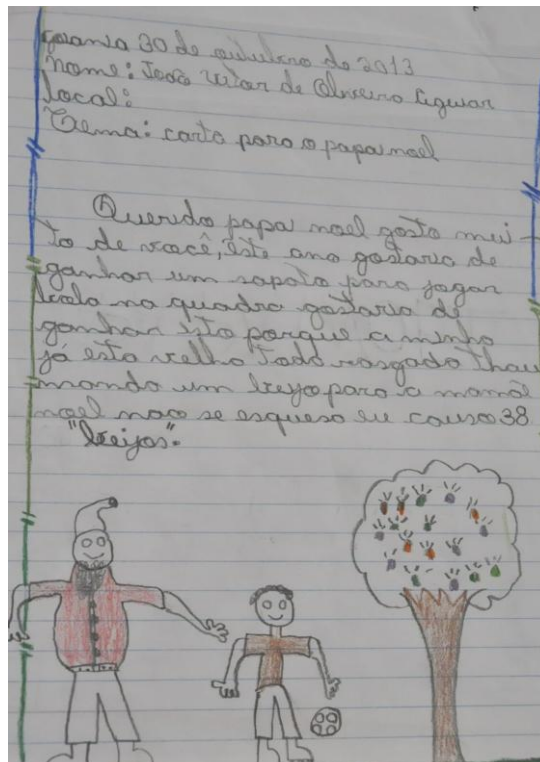 goiania 30 de outubro de 2013
Nome: João Vitor de Oliveira Aguiar
Local:
Tema: carta para o papai noel
Querido papai noel gosto mui-
to de você, este ano gostaria de
ganhar um sapato para jogar
bola na quadra gostaria de
ganhar isto porque a minha
já esta velho todo rasgado thau
mando um beijo para a mamãe
noel nao se esqueso eu causo 38
"beijos".